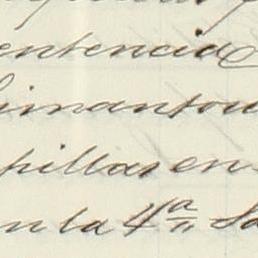 entencia
imantou
pillas en
n la 4ª Sa